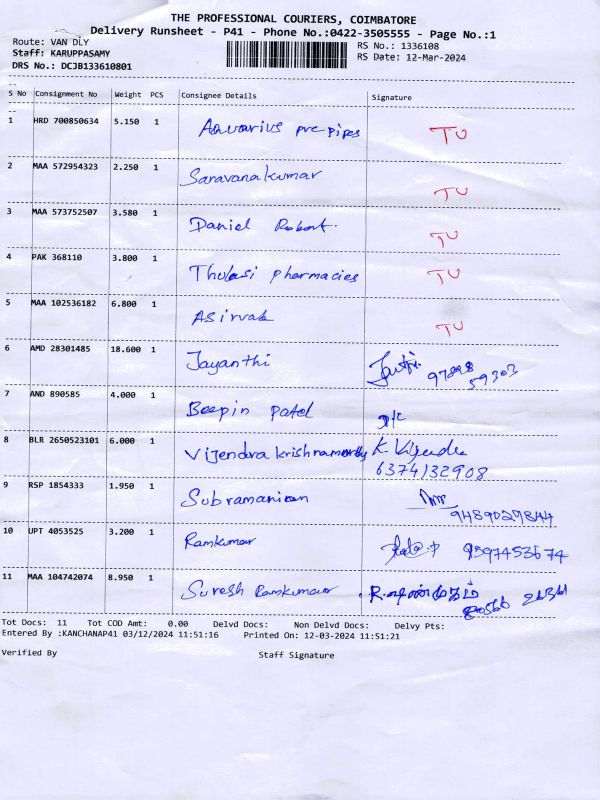 THE PROFESSIONAL COURIERS, COIMBATORE
Delivery Runsheet - P41 - Phone No.:0422-3505555 - Page No.:1
Route: VAN DLY RS No.: 1336108
Staff: KARUPPASAMY RS Date: 12-Mar-2024
DRS No.: DCJB133610801
S No Consignment No Weight PCS Consignee Details Signature
1 HRD 700850634 5.150 1 Aquarius pre pipes TU
2 MAA 572954323 2.250 1 Saravana kumar TU
3 MAA 573752507 3.580 1 Daniel Robert. TU
4 PAK 368110 3.800 1 Thulasi pharmacies TU
5 MAA 102536182 6.800 1 Asirvak TU
6 AMD 28301485 18.600 1 Jayanthi
7 AND 890585 4.000 1 Beepin patel
8 BLR 2650523101 6.000 1 Vijendra krishnamorthy K. Vijendra
6374132908
9 RSP 1854333 1.950 1 Subramanian
9489029844
10 UPT 4053525 3.200 1 Ramkumar 9597453674
11 MAA 104742074 8.950 1 Suresh Ramkumar
Tot Docs: 11 Tot COD Amt: 0.00 Delvd Docs: Non Delvd Docs: Delvy Pts:
Entered By :KANCHANAP41 03/12/2024 11:51:16 Printed On: 12-03-2024 11:51:21
Verified By Staff Signature